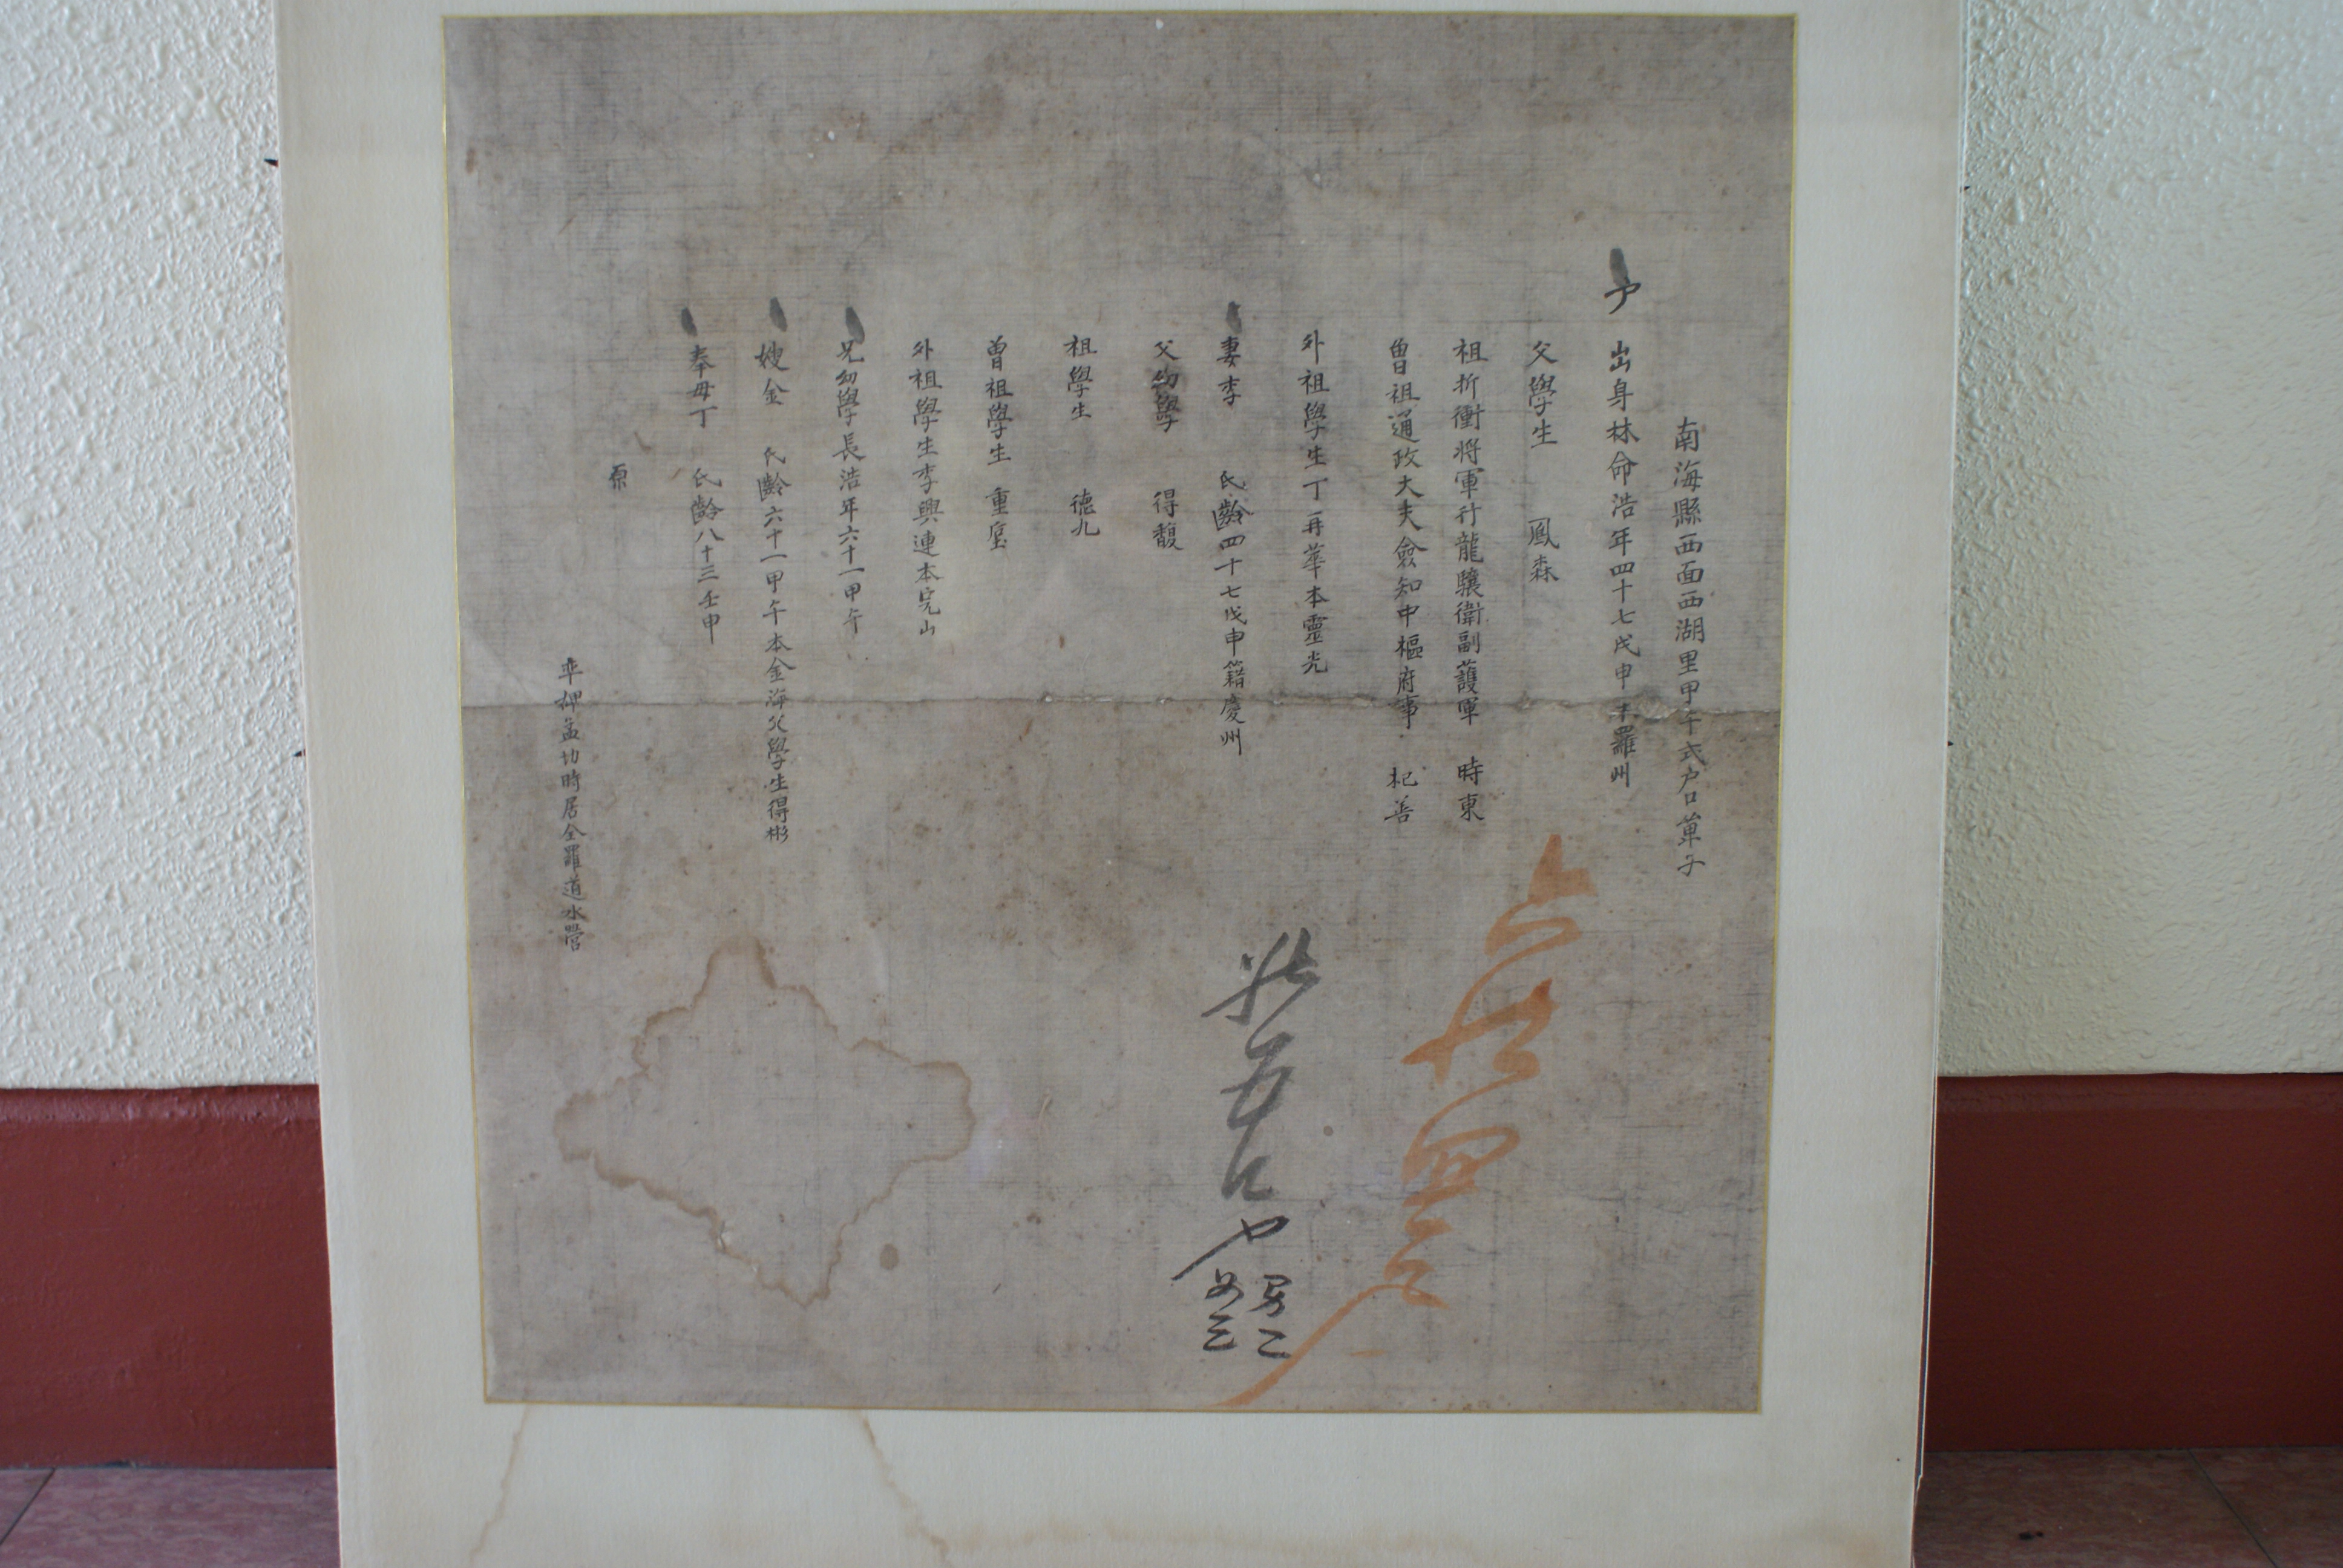 南海縣西面西湖里甲午式户口單子
戶 出身林命浩年四十七戊申本羅州
父學生 鳳森
祖折衝將軍行龍驤衛副護軍 時東
曾祖通政大夫僉知中樞府事 杞善
外祖學生丁再華本靈光
妻李 氏齡四十七戊申籍慶州
父幼學 得馥
祖學生 德九
曾祖學生 重
外祖學生李興連本完山
兄幼學長浩年六十一甲午
嫂金 氏齡六十一甲午本金海父學生得彬
奉母丁 氏齡八十三壬申
率婢孟切時居全羅道水營
五口
男二
女三